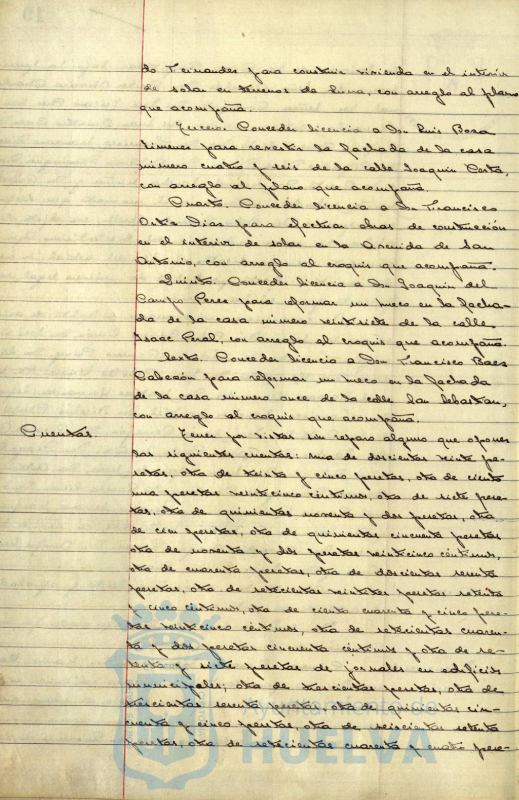 do Fernandez para construir vivienda en el interior
de solar en terrenos de Luna, con arreglo al plano
que acompaña.
Tercero. Conceder licencia a Don Luis Boza
Jimenez para revestir la fachada de la casa
número cuatro y seis de la calle Joaquin Costa,
con arreglo al plano que acompaña.
Cuarto. Conceder licencia a Don Francisco
Ortiz Diaz para efectuar obras de construcción
en el interior de solar en la Avenida de San
Antonio, con arreglo al croquis que acompaña.
Quinto. Conceder licencia a Don Joaquin del
Campo Perez para reformar un hueco en la facha-
da de la casa número veintisiete de la calle
Isaac Peral, con arreglo al croquis que acompaña.
Sexto. Conceder licencia a Don Francisco Baez
para reformar un hueco en la fachada
de la casa número once de la calle San Sebastian,
con arreglo al croquis que acompaña.
Cuentas
Tener por vistas sin reparo alguno que oponer
las siguientes cuentas: una de doscientas veinte pe-
setas, otra de treinta y cinco pesetas, otra de ciento
una pesetas veinticinco céntimos, otra de siete pese-
tas, otra de quinientas noventa y dos pesetas, otra
de cien pesetas, otra de quinientas cincuenta pesetas
otra de noventa y dos pesetas veinticinco céntimos,
otra de cuarenta pesetas, otra de doscientas sesenta
pesetas, otra de setecientas veintitres pesetas setenta
y cinco céntimos, otra de ciento cuarenta y cinco pese-
tas veinticinco céntimos, otra de setecientas cuaren-
ta y dos pesetas cincuenta céntimos y otra de se-
tenta y siete pesetas de jornales en edificios
municipales; otra de trescientas pesetas, otra de
trescientas sesenta pesetas, otra de quinientas cin-
cuenta y cinco pesetas, otra de seiscientas setenta
pesetas, otra de setecientas cuarenta y cuatro pese-
HUELVA